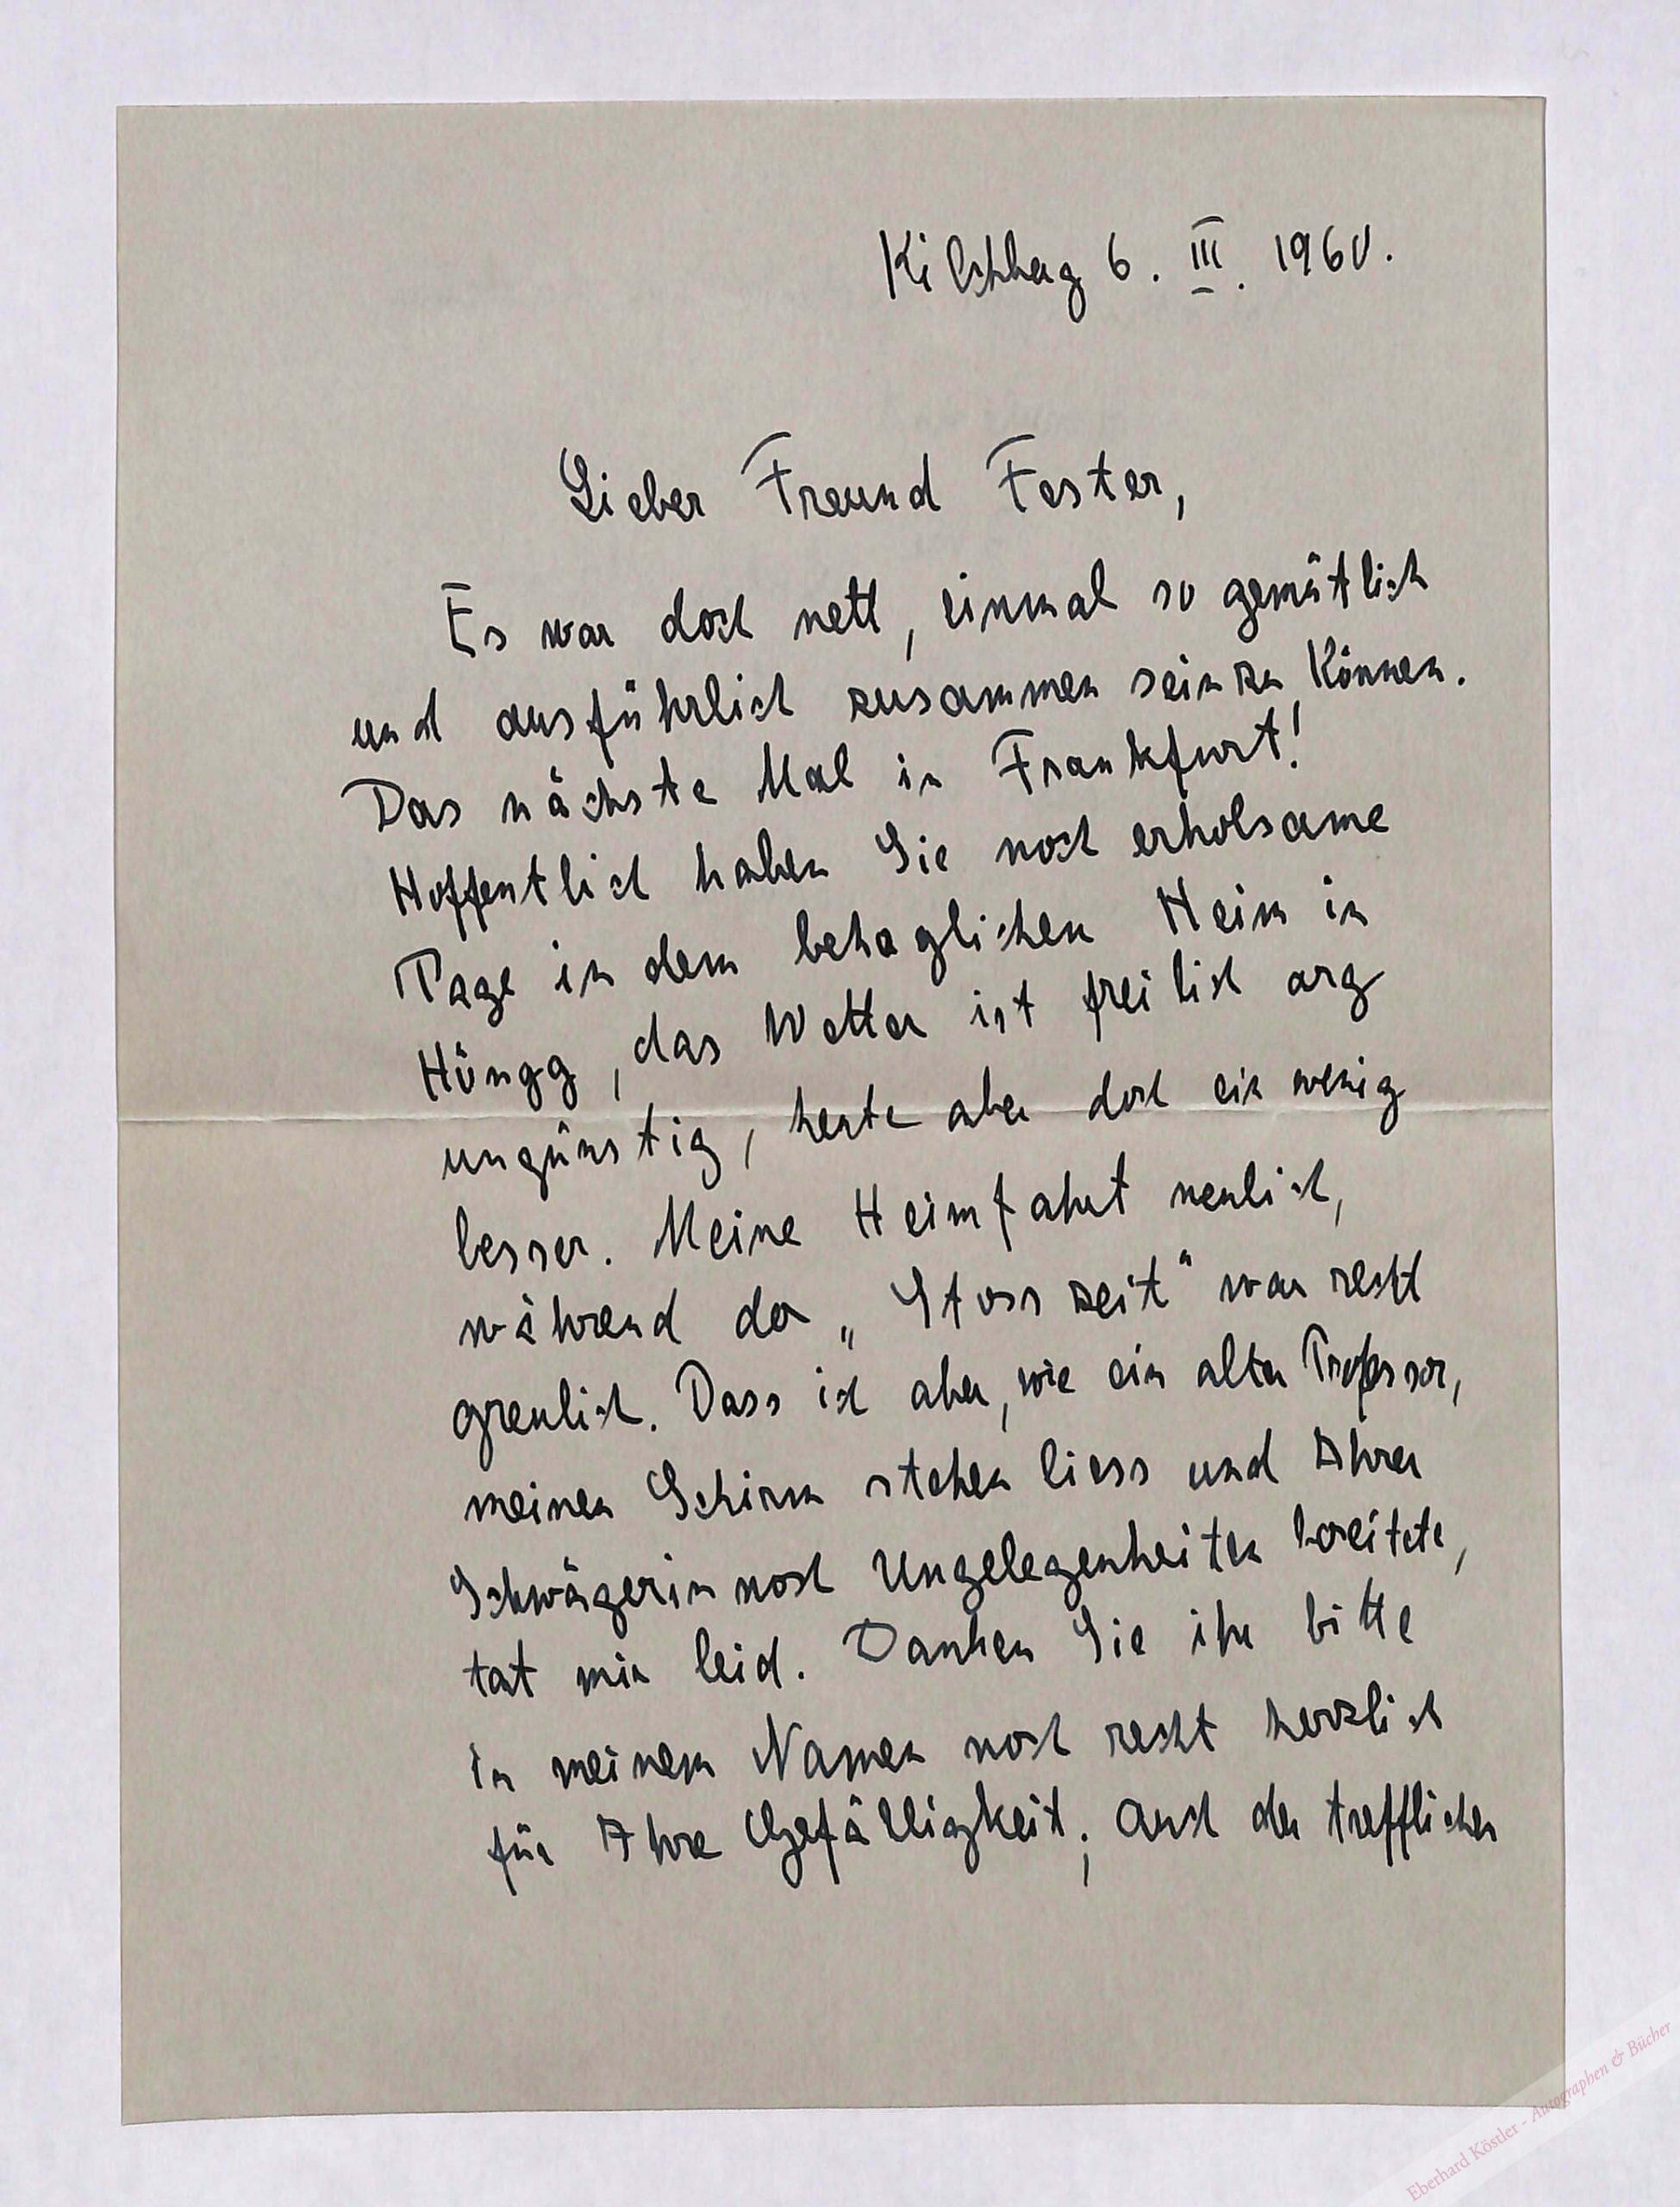 Kilchberg 6. III. 1960.
Lieber Freund Fester,
Es war doch nett, einmal so gemütlich
und ausführlich zusammen sein zu können.
Das nächste Mal in Frankfurt!
Hoffentlich haben Sie noch erholsame
Tage in dem behaglichen Heim in
Höngg, das Wetter ist freilich arg
ungünstig, heute aber doch ein wenig
besser. Meine Heimfahrt neulich,
während der „Stosszeit" war recht
greulich. Dass ich aber, wie ein alter Professor,
meinen Schirm stehen liess und Ihrer
Schwägerin noch Ungelegenheiten bereitete,
tat mir leid. Danken Sie ihr bitte
in meinem Namen noch recht herzlich
für Ihre Gefälligkeit; auch der trefflichen
Eberhard Köstler - Autographen & Bücher